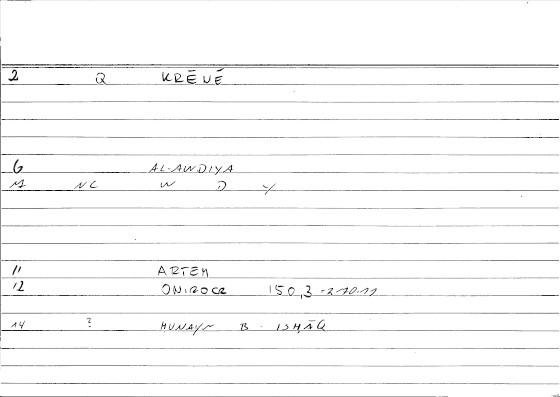 2 Q KRĒNĒ
6 AL-AWDIYA
M NC W D Y
11 ARTEM
12 ONIROCR 150,3
14 ? HUNAYN B. ISḤĀQ